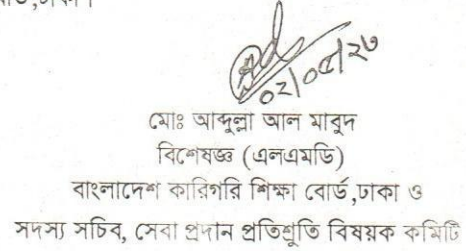 ০২/০৮/২৩
মোঃ আব্দুল্লা আল মাবুদ
বিশেষজ্ঞ (এলএমডি)
বাংলাদেশ কারিগরি শিক্ষা বোর্ড,ঢাকা ও
সদস্য সচিব, সেবা প্রদান প্রতিশ্রুতি বিষয়ক কমিটি